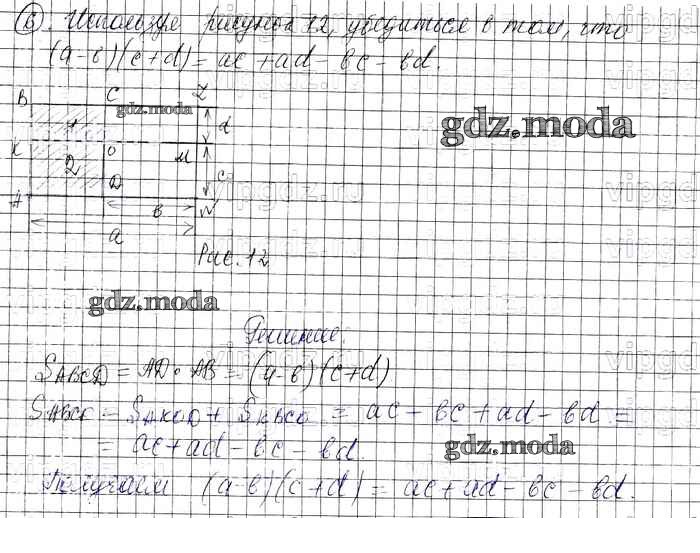 6. Используя рисунок 12, убедиться в том, что
(a-b)(c+d) = ac + ad - bc - bd.
B C Z
gdz.moda
1 d
gdz.moda
K O M
2
D c
A b N
a
Рис. 12
gdz.moda
Решение.
S ABCD = AD · AB = (a-b)(c+d)
S ABCD = S AKOD + S KBCO = ac - bc + ad - bd =
= ac + ad - bc - bd.
gdz.moda
Получаем (a-b)(c+d) = ac + ad - bc - bd.
vipgdz.ru